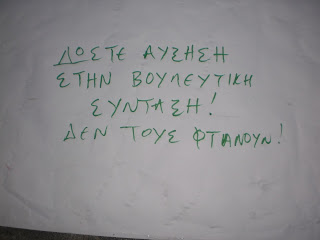 ΔΟΣΤΕ ΑΥΞΗΣΗ
ΣΤΗΝ ΒΟΥΛΕΥΤΙΚΗ
ΣΥΝΤΑΞΗ!
ΔΕΝ ΤΟΥΣ ΦΤΑΝΟΥΝ!